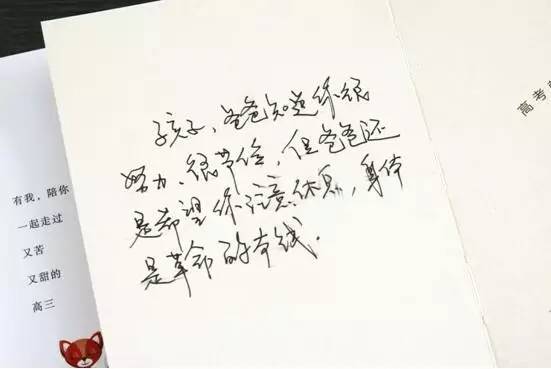 孩子，爸爸知道你很
努力、很节俭，但爸爸还
是希望你注意休息，身体
是革命的本钱.
有我，陪你
一起走过
又苦
又甜的
高三
高考